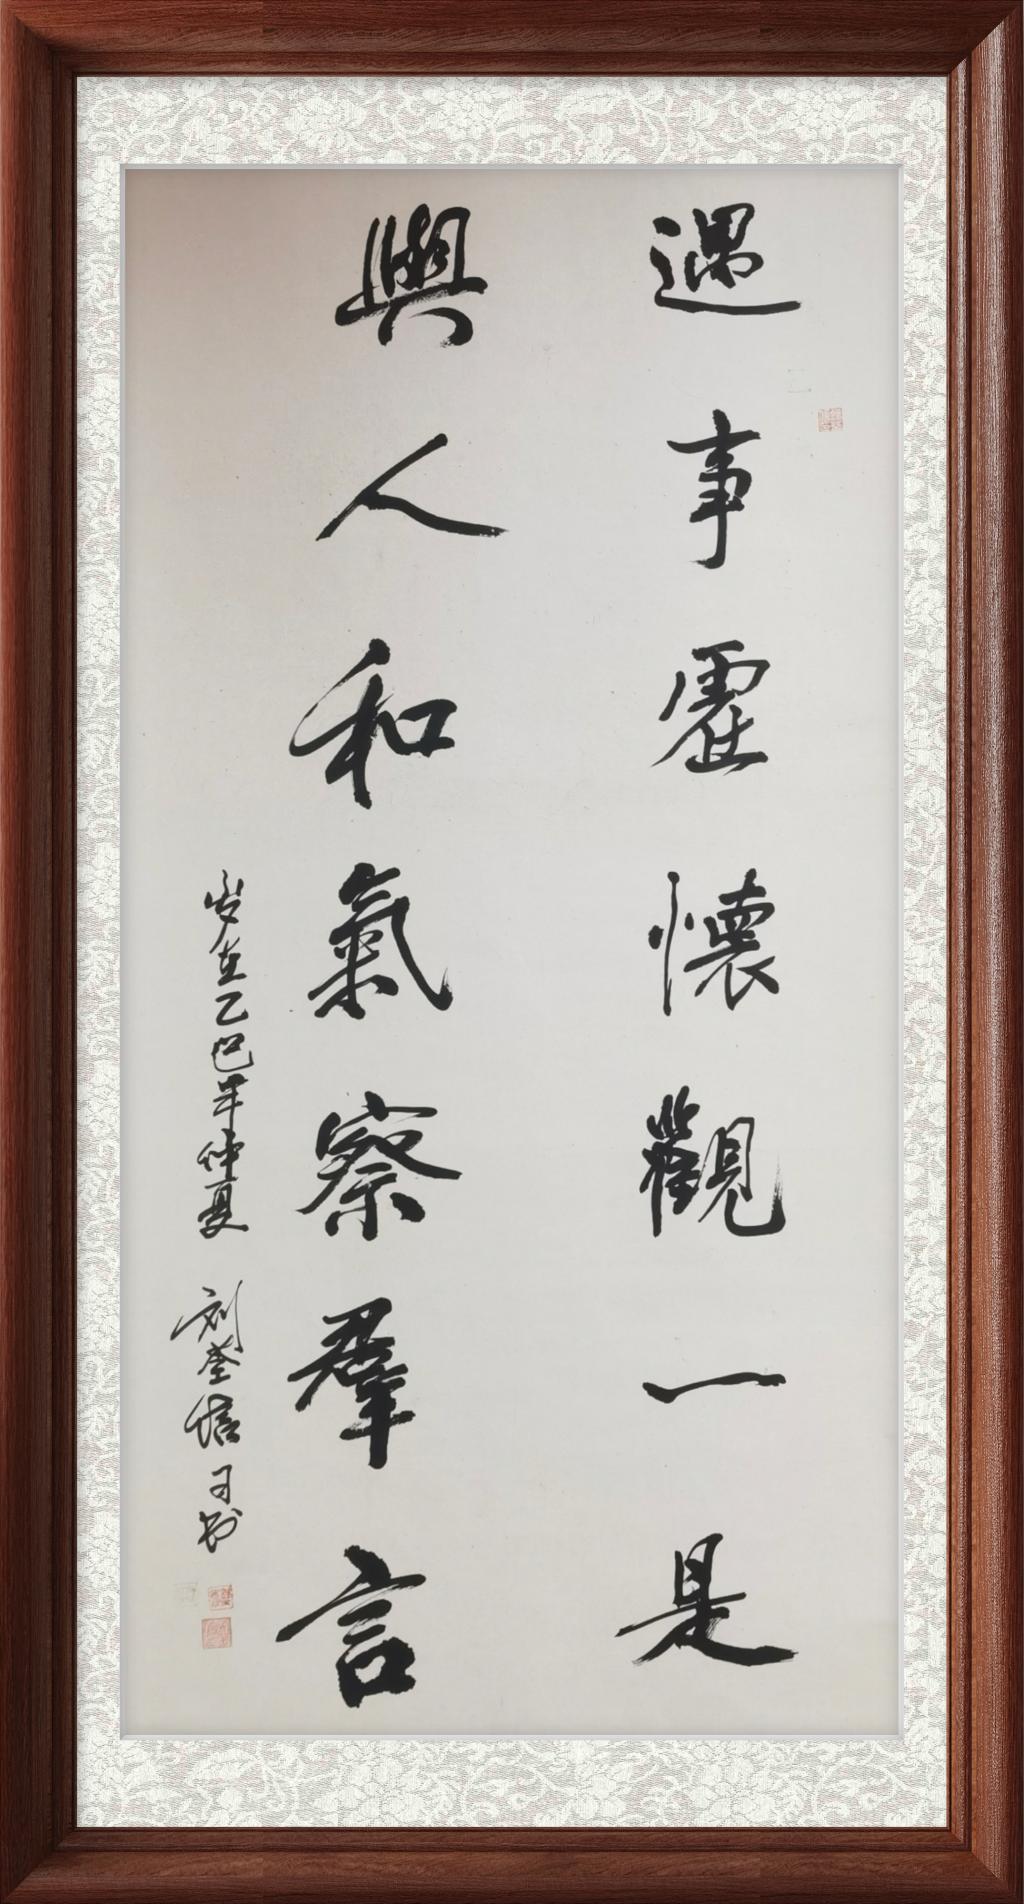 遇事虛懷觀一是
與人和氣察羣言
岁在乙巳年仲夏
刘荃培习书